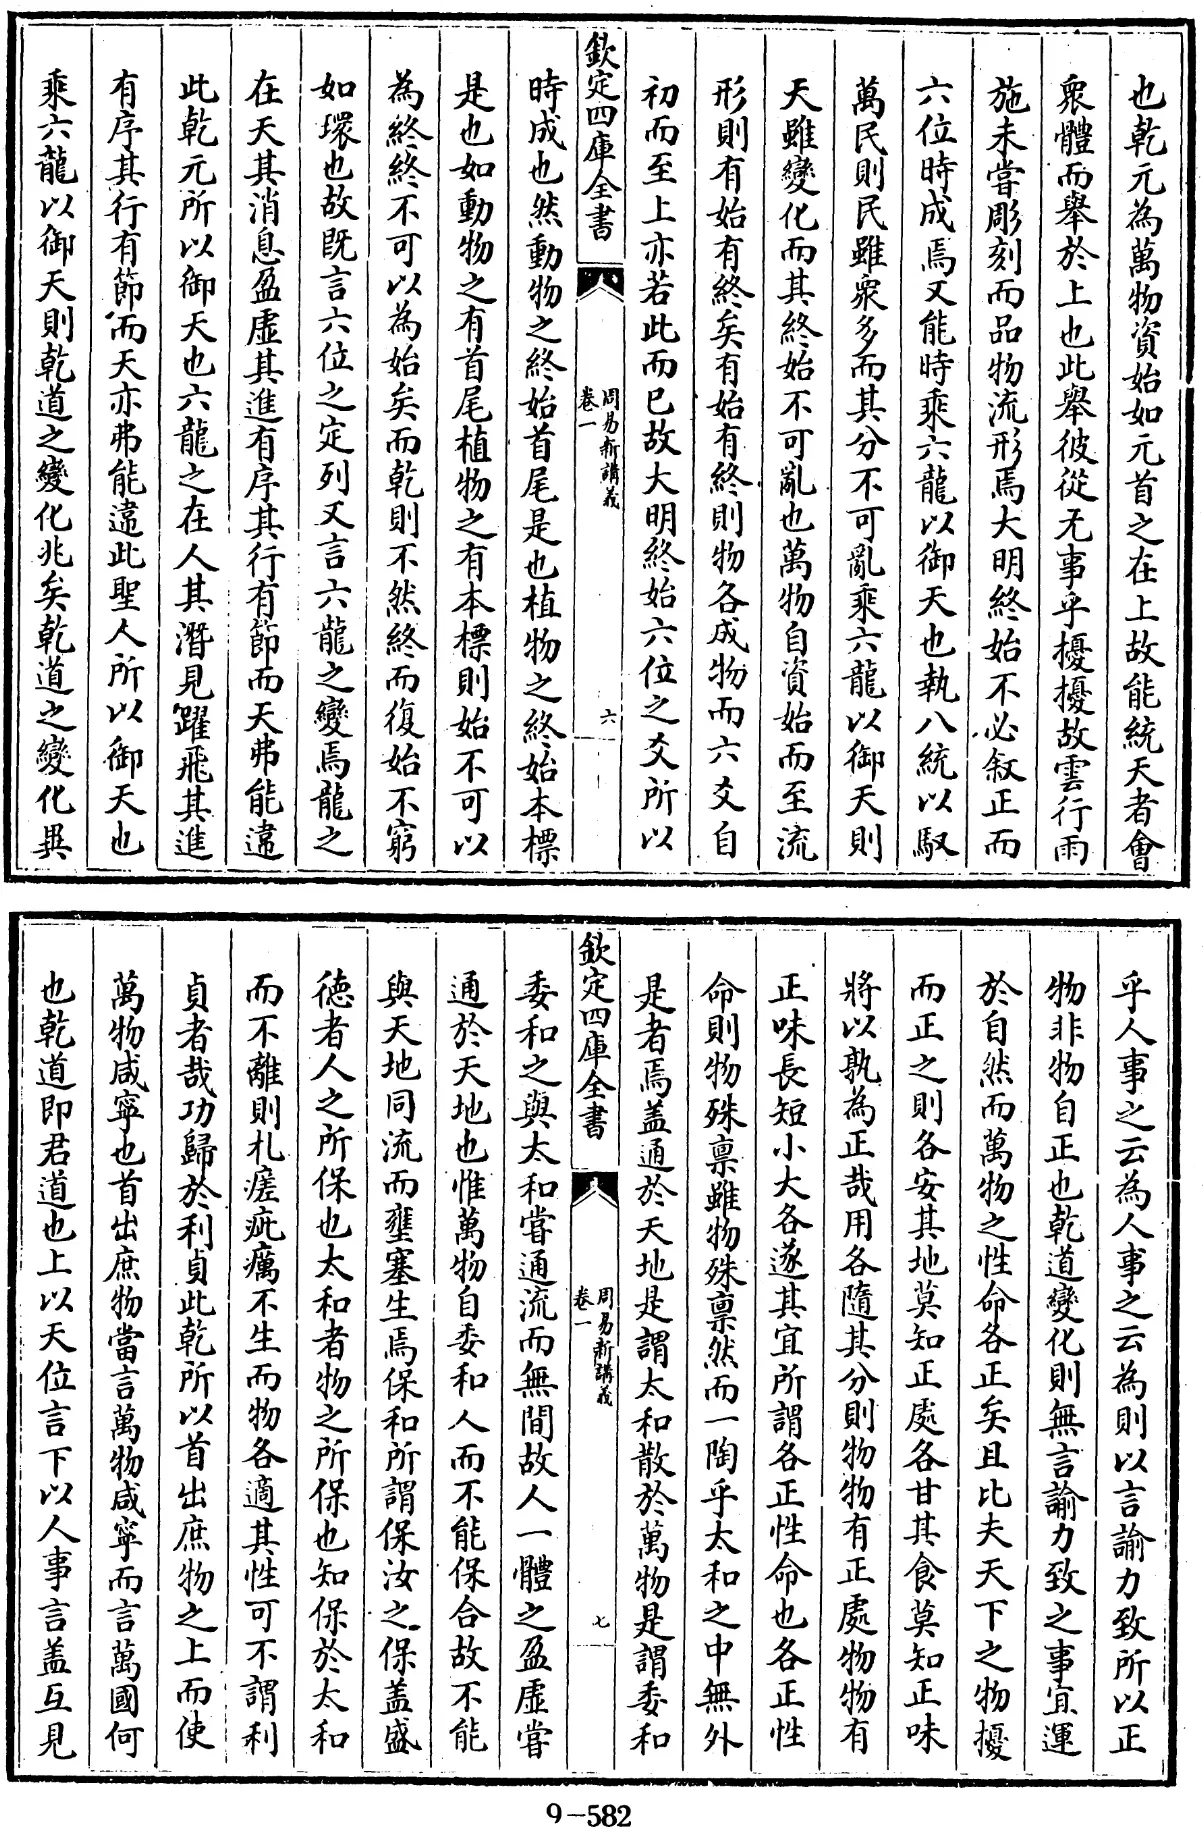 也乾元為萬物資始如元首之在上故能統天者會
衆體而舉於上也此舉彼從无事乎擾擾故雲行雨
施未嘗彫刻而品物流形焉大明終始不必叙正而
六位時成焉又能時乘六龍以御天也執八統以馭
萬民則民雖衆多而其分不可亂乘六龍以御天則
天雖變化而其終始不可亂也萬物自資始而至流
形則有始有終矣有始有終則物各成物而六爻自
初而至上亦若此而已故大明終始六位之爻所以
欽定四庫全書
周易新講義
卷一
六
時成也然動物之終始首尾是也植物之終始本標
是也如動物之有首尾植物之有本標則始不可以
為終終不可以為始矣而乾則不然終而復始不窮
如環也故既言六位之定列又言六龍之變焉龍之
在天其消息盈虛其進有序其行有節而天弗能違
此乾元所以御天也六龍之在人其潛見躍飛其進
有序其行有節而天亦弗能違此聖人所以御天也
乘六龍以御天則乾道之變化兆矣乾道之變化異
乎人事之云為人事之云為則以言諭力致所以正
物非物自正也乾道變化則無言諭力致之事宜運
於自然而萬物之性命各正矣且比夫天下之物擾
而正之則各安其地莫知正處各甘其食莫知正味
將以孰為正哉用各隨其分則物物有正處物物有
正味長短小大各遂其宜所謂各正性命也各正性
命則物殊稟雖物殊稟然而一陶乎太和之中無外
是者焉盖通於天地是謂太和散於萬物是謂委和
欽定四庫全書
周易新講義
卷一
七
委和之與太和嘗通流而無間故人一體之盈虛嘗
通於天地也惟萬物自委和人而不能保合故不能
與天地同流而壅塞生焉保和所謂保汝之保盖盛
德者人之所保也太和者物之所保也知保於太和
而不離則札瘥疵癘不生而物各適其性可不謂利
貞者哉功歸於利貞此乾所以首出庶物之上而使
萬物咸寧也首出庶物當言萬物咸寧而言萬國何
也乾道即君道也上以天位言下以人事言盖互見
9-582